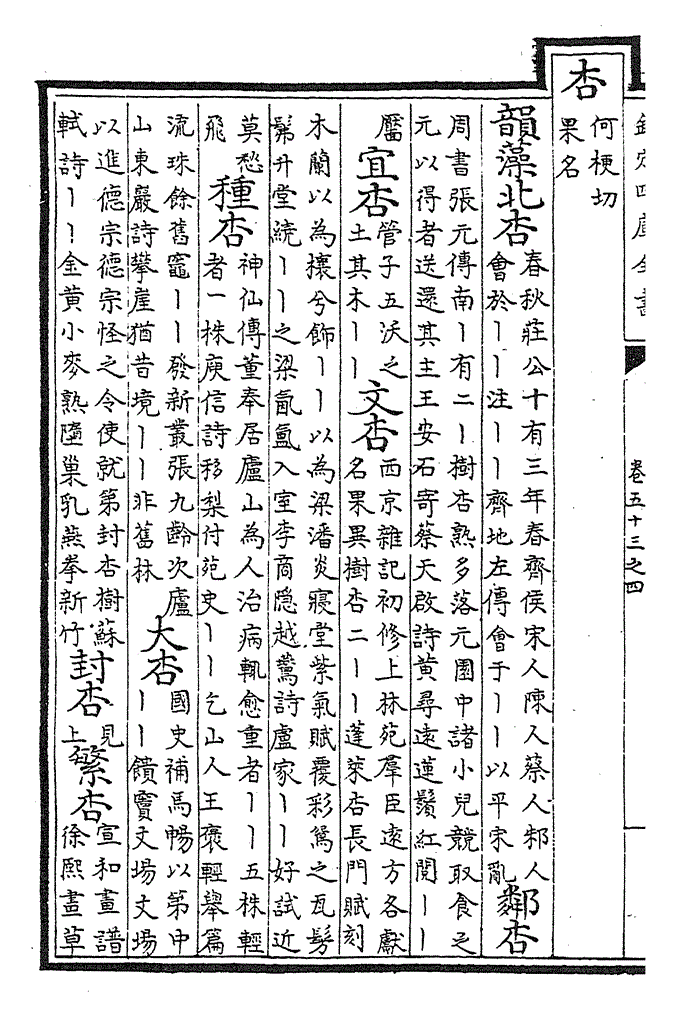 欽定四庫全書
卷五十三之四
杏
何梗切
果名
韻藻北杏
春秋莊公十有三年春齊侯宋人陳人蔡人邾人
會於丨丨注丨丨齊地左傳會于丨丨以平宋亂
鄰杏
周書張元傳南丨有二丨樹杏熟多落元園中諸小兒競取食之
元以得者送還其主王安石寄蔡天啟詩黄尋遠蓮鬚紅閱丨丨
靨
宜杏
管子五沃之
土其木丨丨
文杏
西京雜記初修上林苑羣臣遠方各獻
名果異樹杏二丨丨蓬萊杏長門賦刻
木蘭以為榱兮飾丨丨以為梁潘炎寢堂紫氣賦覆彩鴛之瓦髣
髴升堂繞丨丨之梁氤氳入室李商隱越鷰詩盧家丨丨好試近
莫愁
飛
種杏
神仙傳董奉居廬山為人治病輒愈重者丨丨五株輕
者一株庾信詩移梨付苑史丨丨乞山人王褒輕舉篇
流珠餘舊竈丨丨發新叢張九齡次廬
山東嚴詩攀崖猶昔境丨丨非舊林
大杏
國史補馬暢以第中
丨丨饋竇文場文場
以進德宗德宗怪之令使就第封杏樹蘇
軾詩丨丨金黄小麥熟隨巢乳燕拳新竹
封杏
見
上
繁杏
宣和畫譜
徐熙畫草